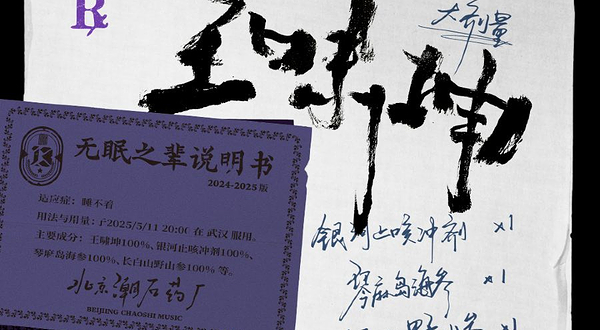 R
大剂量
王啸坤
无眠之辈说明书
2024-2025版
适应症：睡不着
用法与用量：于2025/5/11 20:00 在 武汉 服用。
主要成分：王啸坤100%、银河止咳冲剂100%、
琴麻岛海参100%、长白山野山参100% 等。
北京潮石药厂
BEIJING CHAOSHI MUSIC
银河止咳冲剂 x1
琴麻岛海参 x1